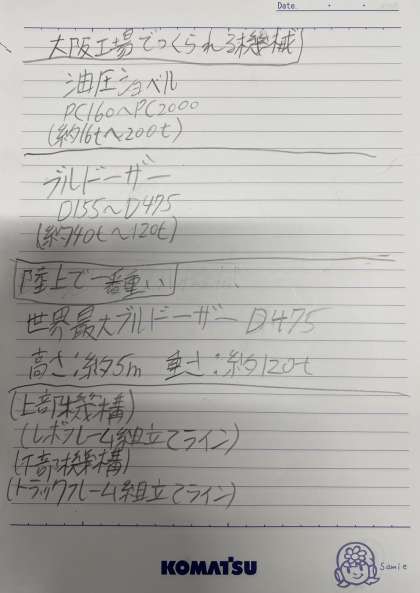 Date
大阪工場でつくられる機械
油圧ショベル
PC160〜PC2000
(約16t〜200t)
ブルドーザー
D155〜D475
(約40t〜120t)
陸上で一番重い
世界最大ブルドーザー D475
高さ:約5m 重さ:約120t
(上部機構)
(レボフレーム組立てライン)
(下部機構)
(トラックフレーム組立てライン)
KOMATSU
Samie